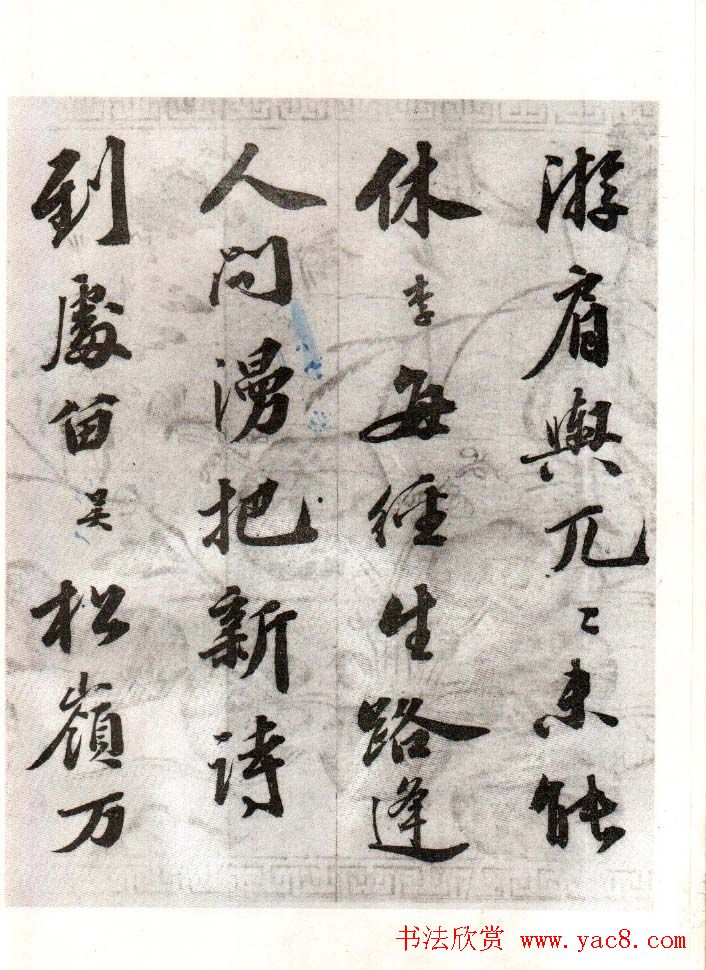 游肩舆兀〻未能
休李每经生路逢
人问漫把新诗
到處留吴松嶺万
书法欣赏 www.yac8.com